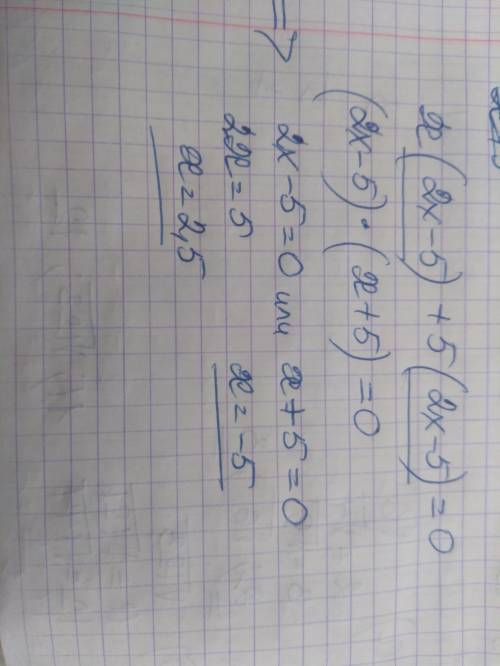 x(2x-5)+5(2x-5)=0
(2x-5)·(x+5)=0
=> 2x-5=0 или x+5=0
2x=5 x=-5
x=2,5